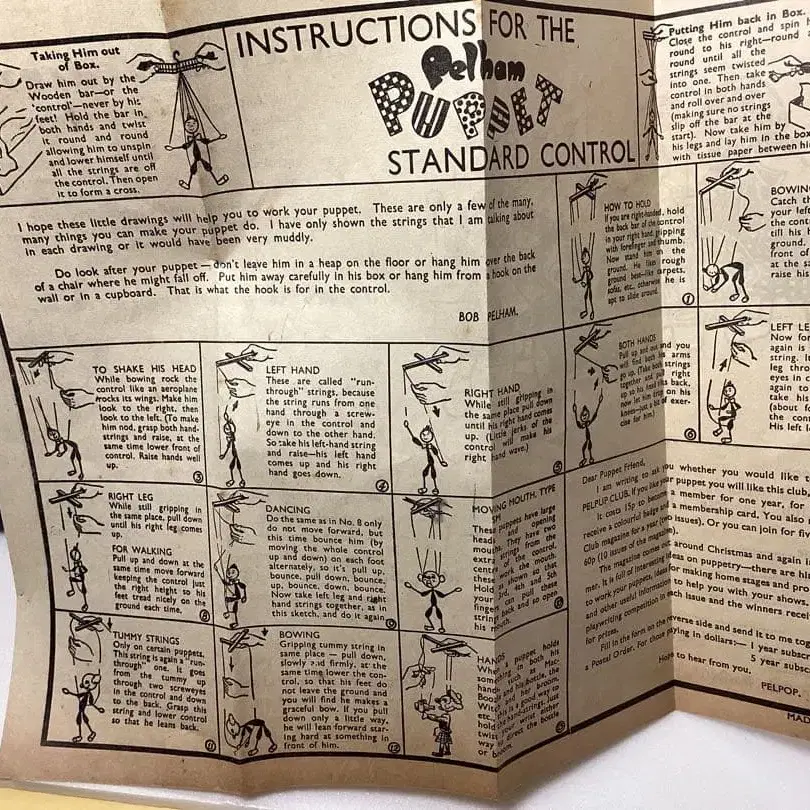 Taking Him out
of Box.
Draw him out by the
Wooden bar—or the
'control'—never by his
feet! Hold the bar in
both hands and twist
it round and round
allowing him to unspin
and lower himself until
all the strings are off
the control. Then open
it to form a cross.
INSTRUCTIONS FOR THE
Pelham
PUPPET
STANDARD CONTROL
Putting Him back in Box.
Close the control and spin
round to his right—round
round until all the
strings seem twisted
into one. Then take
control in both hands
and roll over and over
(making sure no strings
slip off the bar at the
start). Now take him by
his legs and lay him in the box
with tissue paper between
I hope these little drawings will help you to work your puppet. These are only a few of the many,
many things you can make your puppet do. I have only shown the strings that I am talking about
in each drawing or it would have been very muddly.
Do look after your puppet—don't leave him in a heap on the floor or hang him over the back
of a chair where he might fall off. Put him away carefully in his box or hang him from a hook on the
wall or in a cupboard. That is what the hook is for in the control.
BOB PELHAM.
HOW TO HOLD
If you are right-handed, hold
the back bar of the control
in your right hand, gripping
with forefinger and thumb.
Now stand him on the
ground. He likes rough
ground best—like carpets,
sofas, etc., otherwise he is
apt to slide around.
1
BOWING
Catch
your left
the
till his
ground.
front of
at the
raise his
TO SHAKE HIS HEAD
While bowing rock the
control like an aeroplane
rocks its wings. Make him
look to the right, then
look to the left. (To make
him nod, grasp both hand-
strings and raise, at the
same time lower front of
control. Raise hands well
up.
3
LEFT HAND
These are called "run-
through" strings, because
the string runs from one
hand through a screw-
eye in the control and
down to the other hand.
So take his left-hand string
and raise—his left hand
comes up and his right
hand goes down.
4
RIGHT HAND
While still gripping in
the same place pull down
until his right hand comes
up. (Little jerks of the
control will make his
right hand wave.)
5
BOTH HANDS
Pull up and out and you
will find both his arms
go up. (Take both strings
together and pull right
up to his head like back,
now let him
6
LEFT
Now for
again is
string. It
leg through
eyes in
again to
take his
(about
the
His left
RIGHT LEG
While still gripping in
the same place, pull down
until his right leg comes
up.
FOR WALKING
Pull up and down at the
same time move forward
keeping the control just
the right height so his
feet tread nicely on the
ground each time.
8
DANCING
Do the same as in No. 8 only
do not move forward, but
this time bounce him (by
moving the whole control
up and down) on each foot
alternately, so it's pull up,
bounce, pull down, bounce,
up, bounce, down, bounce.
Now take left and right
hand strings together, as in
this sketch, and do it again
9
MOVING MOUTH TYPE
puppets have large
and opening
They have
strings from the
of the control.
the mouth
shown so that
3rd, 4th and 5th
pull these
back and so open
his mouth.
10
TUMMY STRINGS
Only on certain puppets.
This string is again a "run-
through" one. It goes
from the tummy up
through two screweyes
in the control and down
to the back. Grasp this
string and lower control
so that he leans back.
11
BOWING
Gripping tummy string in
same place — pull down,
slowly and firmly, at the
same time lower the con-
trol, so that his feet do
not leave the ground and
you will find he makes a
graceful bow. If you pull
down only a little way,
he will lean forward star-
ing hard at something in
front of him.
12
HANDS
a puppet holds
in both his
such as Mac-
bottle, the
and her broom,
a good way to
the handstrings. Just
your wrist either
direct the bottle
or broom.
Dear Puppet Friend,
I am writing to ask you whether you would like to
PELPUP CLUB. If you like your puppets you will like this club
It costs 15p to become a member for one year, for
receive a colourful badge and a membership card. You also
Club magazine for a year (two issues). Or you can join for five
60p (10 issues of the magazine).
The magazine comes out around Christmas and again in
mer. It is full of interesting ideas on puppetry—there are
to work your puppets, ideas for making home stages and
and other useful information to help you with your shows.
playwriting competition in each issue and the winners
for prizes.
Fill in the form on the reverse side and send it to me
a Postal Order. For those paying in dollars:— 1 year
5 year
Hope to hear from you.
PELPOP.
MAD